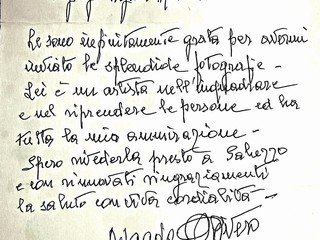 Le sono infinitamente grata per avermi
inviato le splendide fotografie -
Lei è un artista nell'inquadrare
e nel riprendere le persone ed ha
tutta la mia ammirazione -
Spero rivederla presto a Saluzzo
e con rinnovati ringraziamenti
la saluto con viva cordialità -